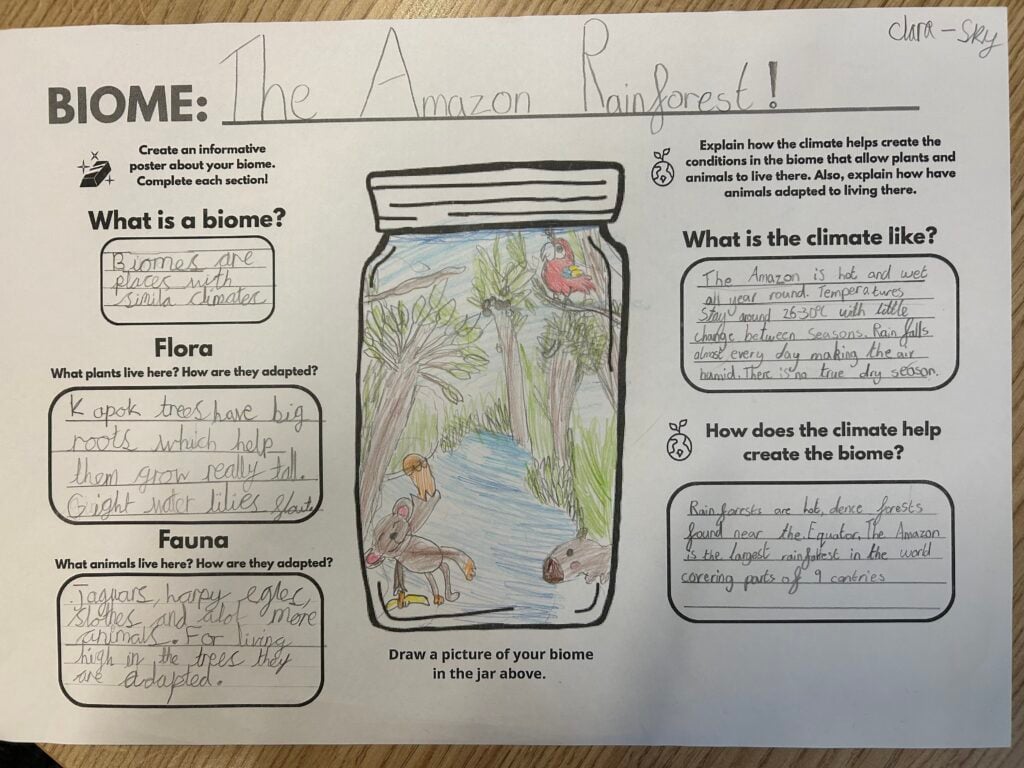 Clara-Sky
BIOME: The Amazon Rainforest!
Create an informative
poster about your biome.
Complete each section!
What is a biome?
Biomes are
places with
simila climates
Flora
What plants live here? How are they adapted?
Kapok trees have big
roots which help
them grow really tall.
Gight water lilies floute
Fauna
What animals live here? How are they adapted?
Jaguars, harpy egles,
slothes, and alot more
animals. For living
high in the trees they
are adapted.
Draw a picture of your biome
in the jar above.
Explain how the climate helps create the
conditions in the biome that allow plants and
animals to live there. Also, explain how have
animals adapted to living there.
What is the climate like?
The Amazon is hot and wet
all year round. Temperatures
stay around 26-30°C with little
change between seasons. Rain falls
almost every day making the air
humid. There is no true dry season.
How does the climate help
create the biome?
Rainforests are hot, dence forests
found near the Equator. The Amazon
is the largest rainforest in the world
covering parts of 9 contries